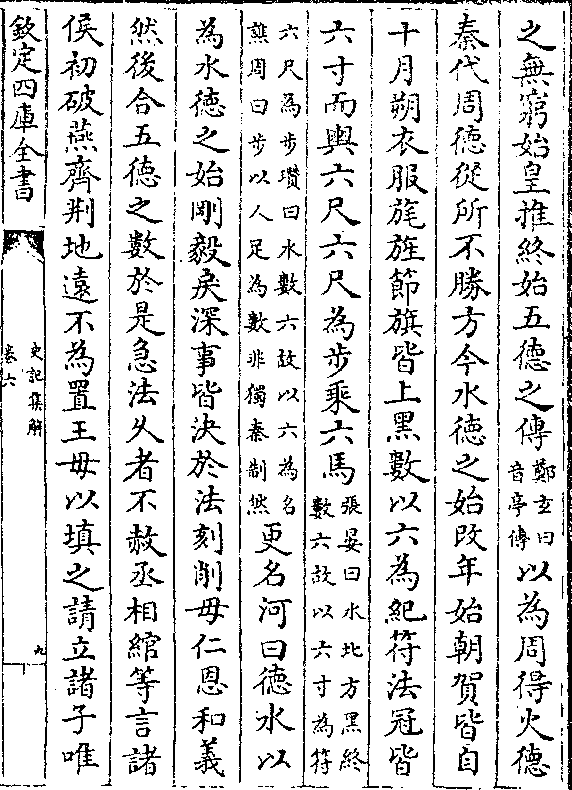 之無窮始皇推終始五德之傳鄭玄曰音亭傳以為周得火德
秦代周德從所不勝方今水德之始改年始朝賀皆自
十月朔衣服旄旌節旗皆上黑數以六為紀符法冠皆
六寸而輿六尺六尺為步乘六馬張晏曰水北方黑終數六故以六寸為符
六尺為步瓚曰水數六故以六為名譙周曰步以人足為數非獨秦制然更名河曰德水以
為水德之始剛毅戾深事皆決於法刻削毋仁恩和義
然後合五德之數於是急法久者不赦丞相綰等言諸
侯初破燕齊荆地遠不為置王毋以填之請立諸子唯
欽定四庫全書
史記集解
卷六
九